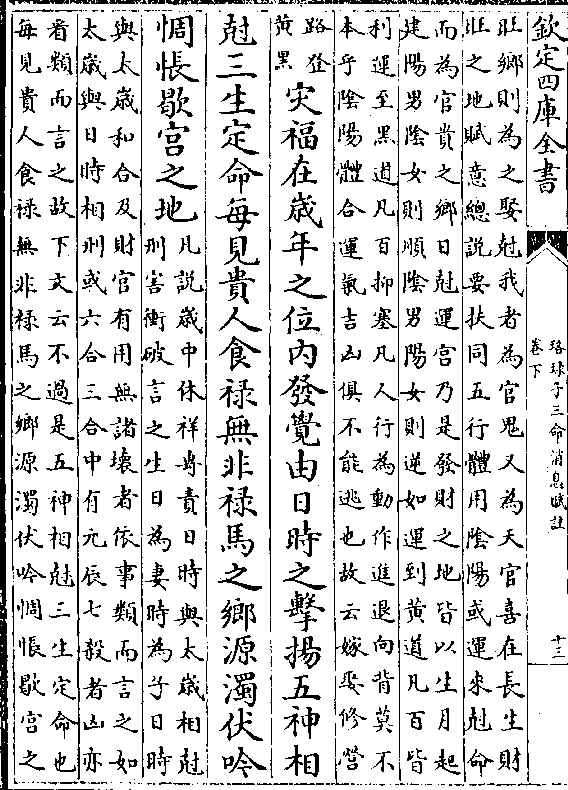 欽定四庫全書
珞琭子三命消息賦註
卷下
十三
旺鄉則為之娶尅我者為官鬼又為天官喜在長生財
旺之地賦意總説要扶同五行體用陰陽或運來尅命
而為官貴之鄉日尅運宫乃是發財之地皆以生月起
建陽男陰女則順陰男陽女則逆如運到黄道凡百皆
利運至黑道凡百抑塞凡人行為動作進退向背莫不
本乎陰陽體合運氣吉凶俱不能逃也故云嫁娶修營
路登
黄黒
灾福在歳年之位内發覺由日時之擊揚五神相
尅三生定命每見貴人食禄無非禄馬之鄉源濁伏吟
惆悵歇宫之地
凡説歳中休祥専責日時與太歳相尅
刑害衝破言之生日為妻時為子日時
與太歳和合及財官有用無諸壊者依事類而言之如
太歳與日時相刑或六合三合中有元辰七殺者凶亦
看類而言之故下文云不過是五神相尅三生定命也
每見貴人食禄無非禄馬之鄉源濁伏吟惆悵歇宫之